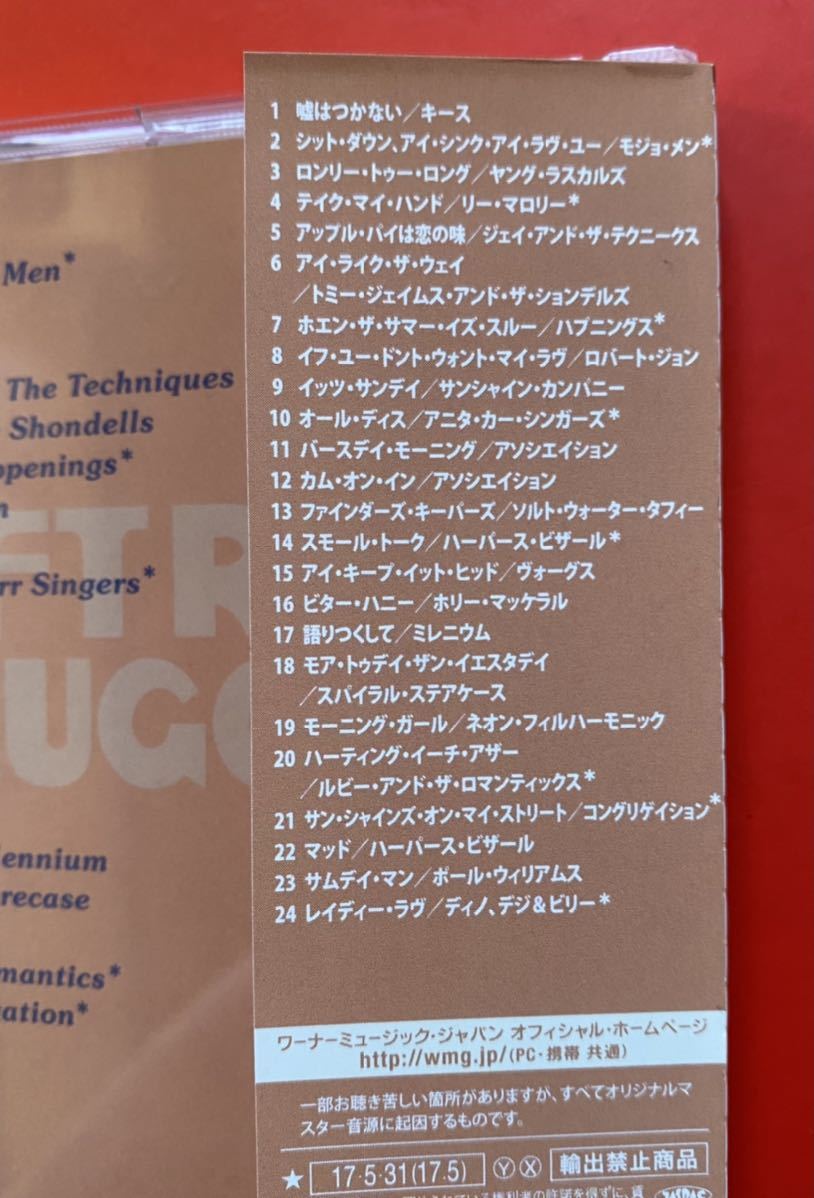 1 嘘はつかない/キース
2 シット・ダウン、アイ・シンク・アイ・ラヴ・ユー/モジョ・メン*
3 ロンリー・トゥー・ロング/ヤング・ラスカルズ
4 テイク・マイ・ハンド/リー・マロリー*
5 アップル・パイは恋の味/ジェイ・アンド・ザ・テクニークス
6 アイ・ライク・ザ・ウェイ
/トミー・ジェイムス・アンド・ザ・ションデルズ
7 ホエン・ザ・サマー・イズ・スルー/ハプニングス*
8 イフ・ユー・ドント・ウォント・マイ・ラヴ/ロバート・ジョン
9 イッツ・サンデイ/サンシャイン・カンパニー
10 オール・ディス/アニタ・カー・シンガーズ*
11 バースデイ・モーニング/アソシエイション
12 カム・オン・イン/アソシエイション
13 ファインダーズ・キーパーズ/ソルト・ウォーター・タフィー
14 スモール・トーク/ハーパース・ビザール*
15 アイ・キープ・イット・ヒッド/ヴォーグス
16 ビター・ハニー/ホリー・マッケラル
17 語りつくして/ミレニウム
18 モア・トゥデイ・ザン・イエスタデイ
/スパイラル・ステアケース
19 モーニング・ガール/ネオン・フィルハーモニック
20 ハーティング・イーチ・アザー
/ルビー・アンド・ザ・ロマンティックス*
21 サン・シャインズ・オン・マイ・ストリート/コングリゲイション*
22 マッド/ハーパース・ビザール
23 サムデイ・マン/ポール・ウィリアムス
24 レイディー・ラヴ/ディノ、デジ&ビリー*
ワーナーミュージック・ジャパン オフィシャル・ホームページ
http://wmg.jp/(PC・携帯 共通)
一部お聴き苦しい箇所がありますが、すべてオリジナルマ
スター音源に起因するものです。
★ 17・5・31(17・5) Ⓨ Ⓧ 輸出禁止商品
Men*
The Techniques
Shondells
ppenings*
n
rr Singers*
FT R
UGG
lennium
recase
mantics*
ation*